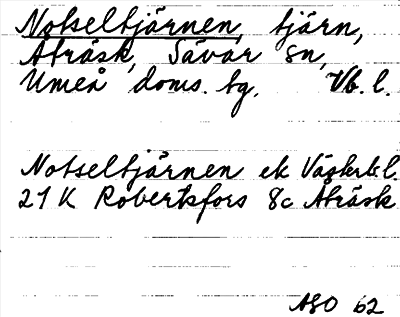 Notseltjärnen, tjärn,
Åträsk, Sävar sn,
Umeå doms. tg. Vb. l.
Notseltjärnen ek Västerb.l.
21 K Robertsfors 8c Åträsk
ASO 62